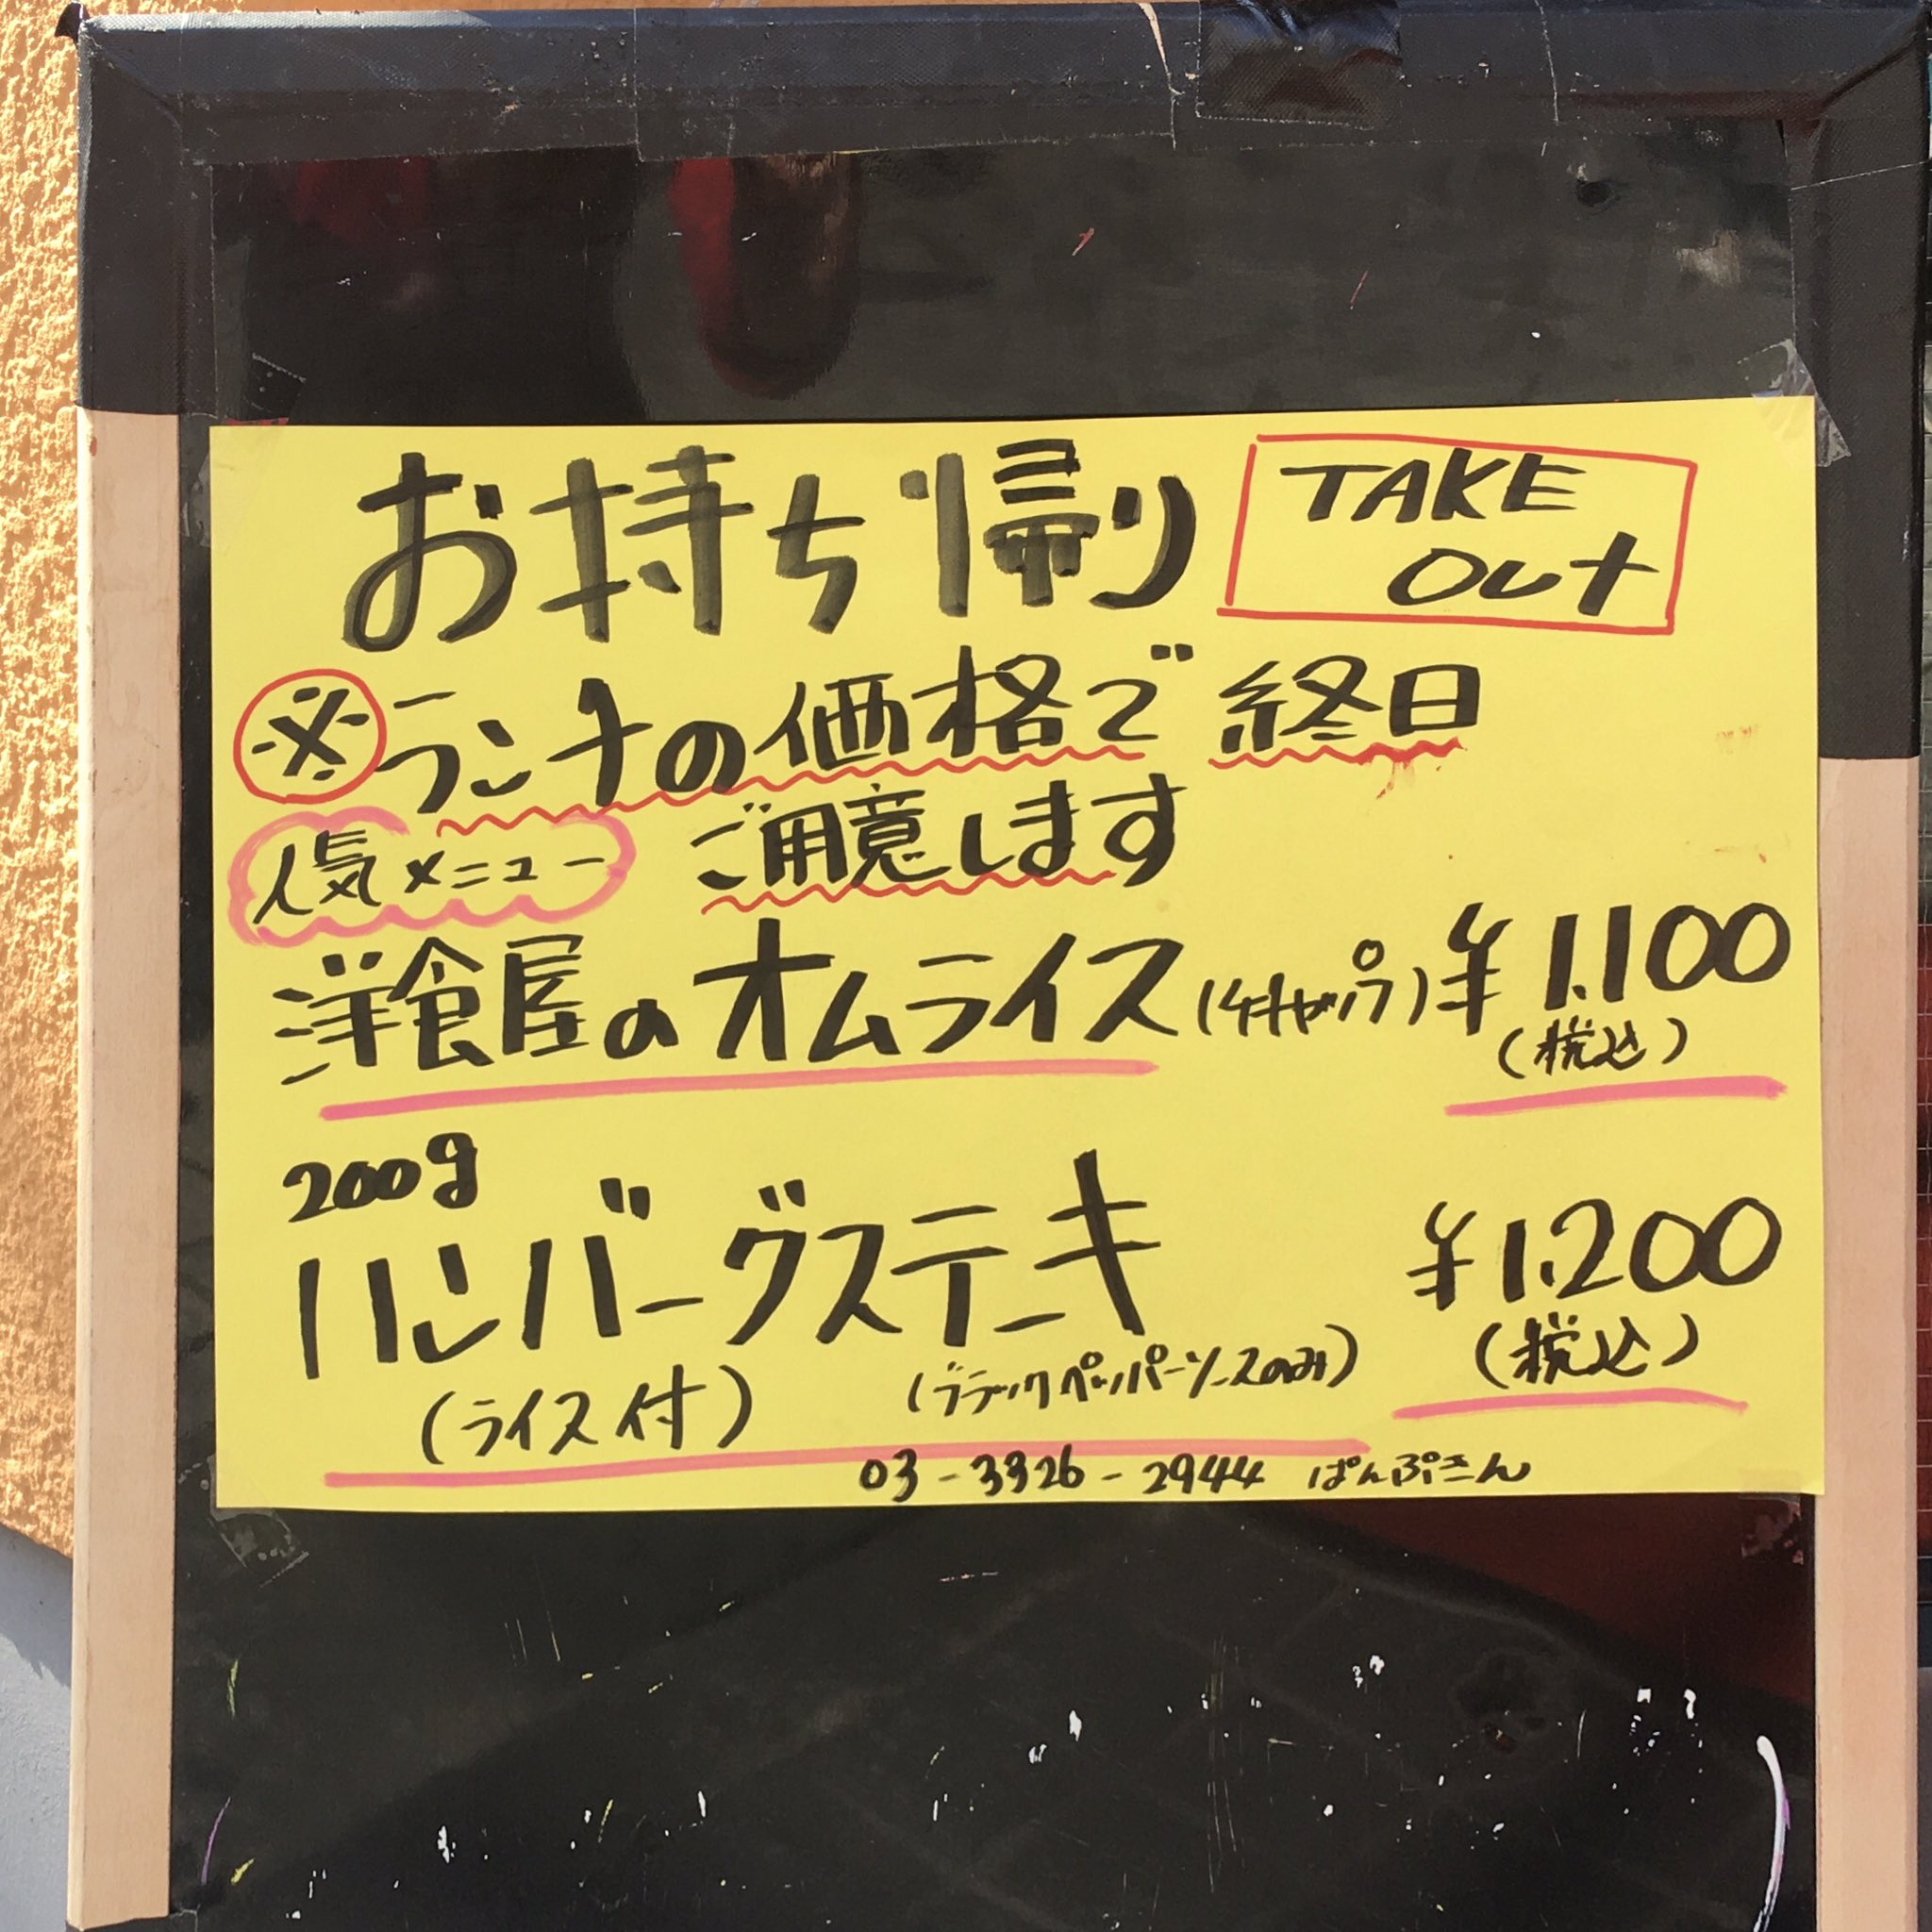 お持ち帰り TAKE OUT
※ランチの価格で 終日
ご用意します
人気メニュー
洋食屋のオムライス(ケチャップ) ¥1.100
(税込)
200g
ハンバーグステーキ ¥1.200
(税込)
(ライス付) (ブラックペッパーソースのみ)
03-3326-2944 ぱんぷきん